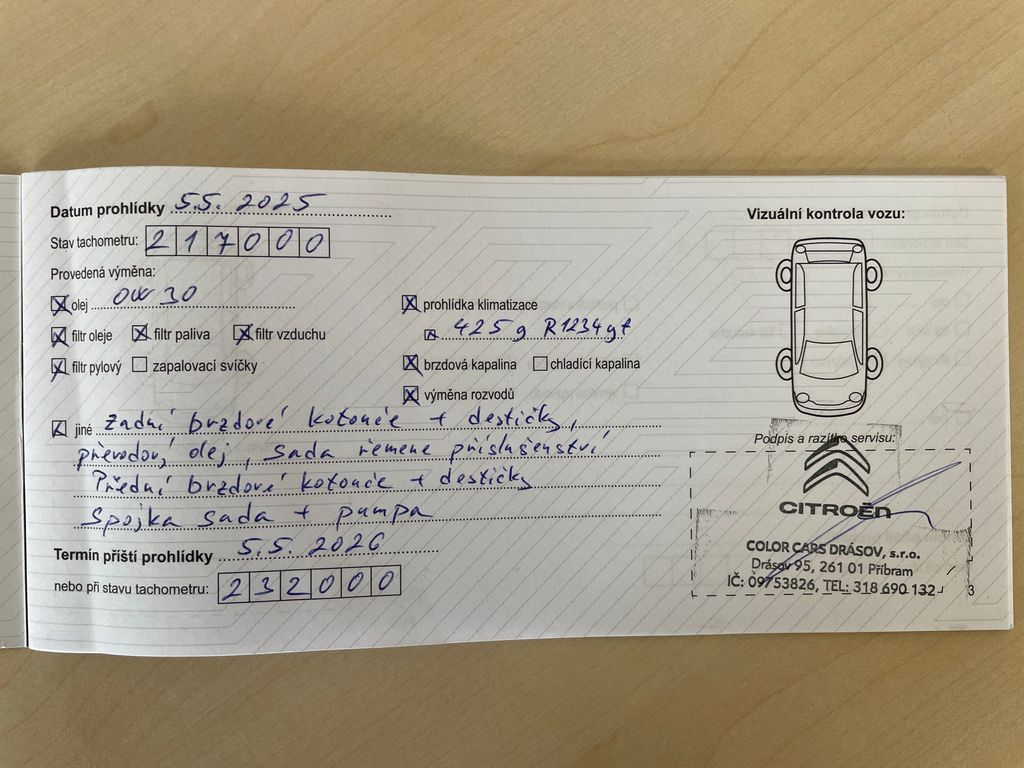 Datum prohlídky 5.5. 2025
Stav tachometru: 217000
Provedená výměna:
olej 0W30
filtr oleje filtr paliva filtr vzduchu
filtr pylový zapalovací svíčky
prohlídka klimatizace
425g R1234yf
brzdová kapalina chladící kapalina
výměna rozvodů
jiné Zadní brzdové kotouče + destičky,
převodov. olej, sada řemene příslušenství
Přední brzdové kotouče + destičky
Spojka sada + pumpa
Termín příští prohlídky 5.5. 2026
nebo při stavu tachometru: 232000
Vizuální kontrola vozu:
Podpis a razítko servisu:
CITROËN
COLOR CARS DRÁSOV, s.r.o.
Drásov 95, 261 01 Příbram
IČ: 09753826, TEL: 318 690 132
3